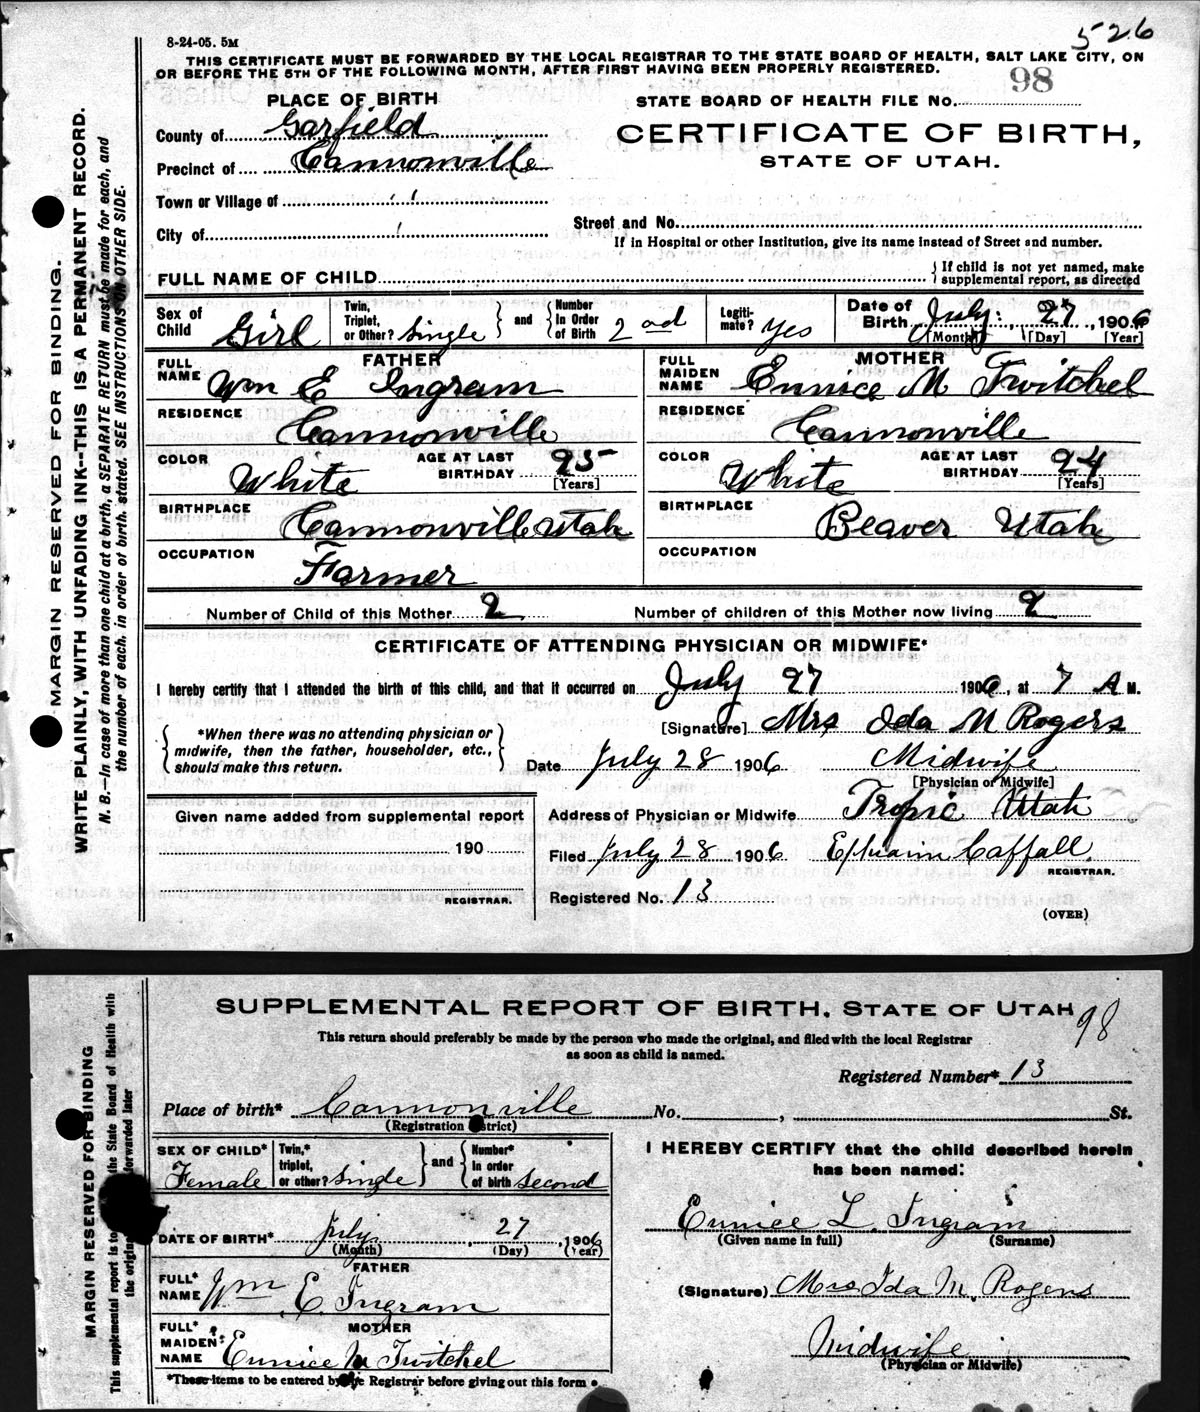 8-24-05. 5M
526
THIS CERTIFICATE MUST BE FORWARDED BY THE LOCAL REGISTRAR TO THE STATE BOARD OF HEALTH, SALT LAKE CITY, ON
OR BEFORE THE 5TH OF THE FOLLOWING MONTH, AFTER FIRST HAVING BEEN PROPERLY REGISTERED.
PLACE OF BIRTH
STATE BOARD OF HEALTH FILE NO. 98
County of Garfield
CERTIFICATE OF BIRTH,
STATE OF UTAH.
Precinct of Cannonville
Town or Village of
City of
Street and No.
If in Hospital or other Institution, give its name instead of Street and number.
FULL NAME OF CHILD
If child is not yet named, make
supplemental report, as directed
Sex of Child Girl
Twin, Triplet, or Other? Single and Number In Order of Birth 2 nd
Legitimate? Yes
Date of Birth July 27, 1906
[Month] [Day] [Year]
FATHER
FULL NAME Wm E Ingram
MOTHER
FULL MAIDEN NAME Eunice M Twitchel
RESIDENCE Cannonville
RESIDENCE Cannonville
COLOR White AGE AT LAST BIRTHDAY 25 [Years]
COLOR White AGE AT LAST BIRTHDAY 24 [Years]
BIRTHPLACE Cannonville Utah
BIRTHPLACE Beaver Utah
OCCUPATION Farmer
OCCUPATION
Number of Child of this Mother 2
Number of children of this Mother now living 2
CERTIFICATE OF ATTENDING PHYSICIAN OR MIDWIFE*
I hereby certify that I attended the birth of this child, and that it occurred on July 27 1906, at 7 A M.
*When there was no attending physician or
midwife, then the father, householder, etc.,
should make this return.
[Signature] Mrs Ida M Rogers
Date July 28 1906 Midwife
[Physician or Midwife]
Given name added from supplemental report
190
REGISTRAR.
Address of Physician or Midwife Tropic Utah
Filed July 28 1906 Ephraim Caffall.
REGISTRAR.
Registered No. 13
(OVER)
MARGIN RESERVED FOR BINDING.
WRITE PLAINLY, WITH UNFADING INK--THIS IS A PERMANENT RECORD.
N. B.—In case of more than one child at a birth, a SEPARATE RETURN must be made for each, and
the number of each, in order of birth, stated. SEE INSTRUCTIONS ON OTHER SIDE.
SUPPLEMENTAL REPORT OF BIRTH, STATE OF UTAH
98
This return should preferably be made by the person who made the original, and filed with the local Registrar
as soon as child is named.
Registered Number* 13
Place of birth* Cannonville No. , St.
(Registration District)
SEX OF CHILD* Female
Twin,* triplet, or other? Single and Number* In order of birth second
DATE OF BIRTH* July 27, 1906
(Month) (Day) (Year)
FATHER
FULL* NAME Wm E. Ingram
MOTHER
FULL* MAIDEN NAME Eunice M Twitchel
*These items to be entered by the Registrar before giving out this form
I HEREBY CERTIFY that the child described herein
has been named:
Eunice L. Ingram
(Given name in full) (Surname)
(Signature) Mrs Ida M. Rogers
Midwife
(Physician or Midwife)
MARGIN RESERVED FOR BINDING
This supplemental report is to the State Board of Health with
the original forwarded later